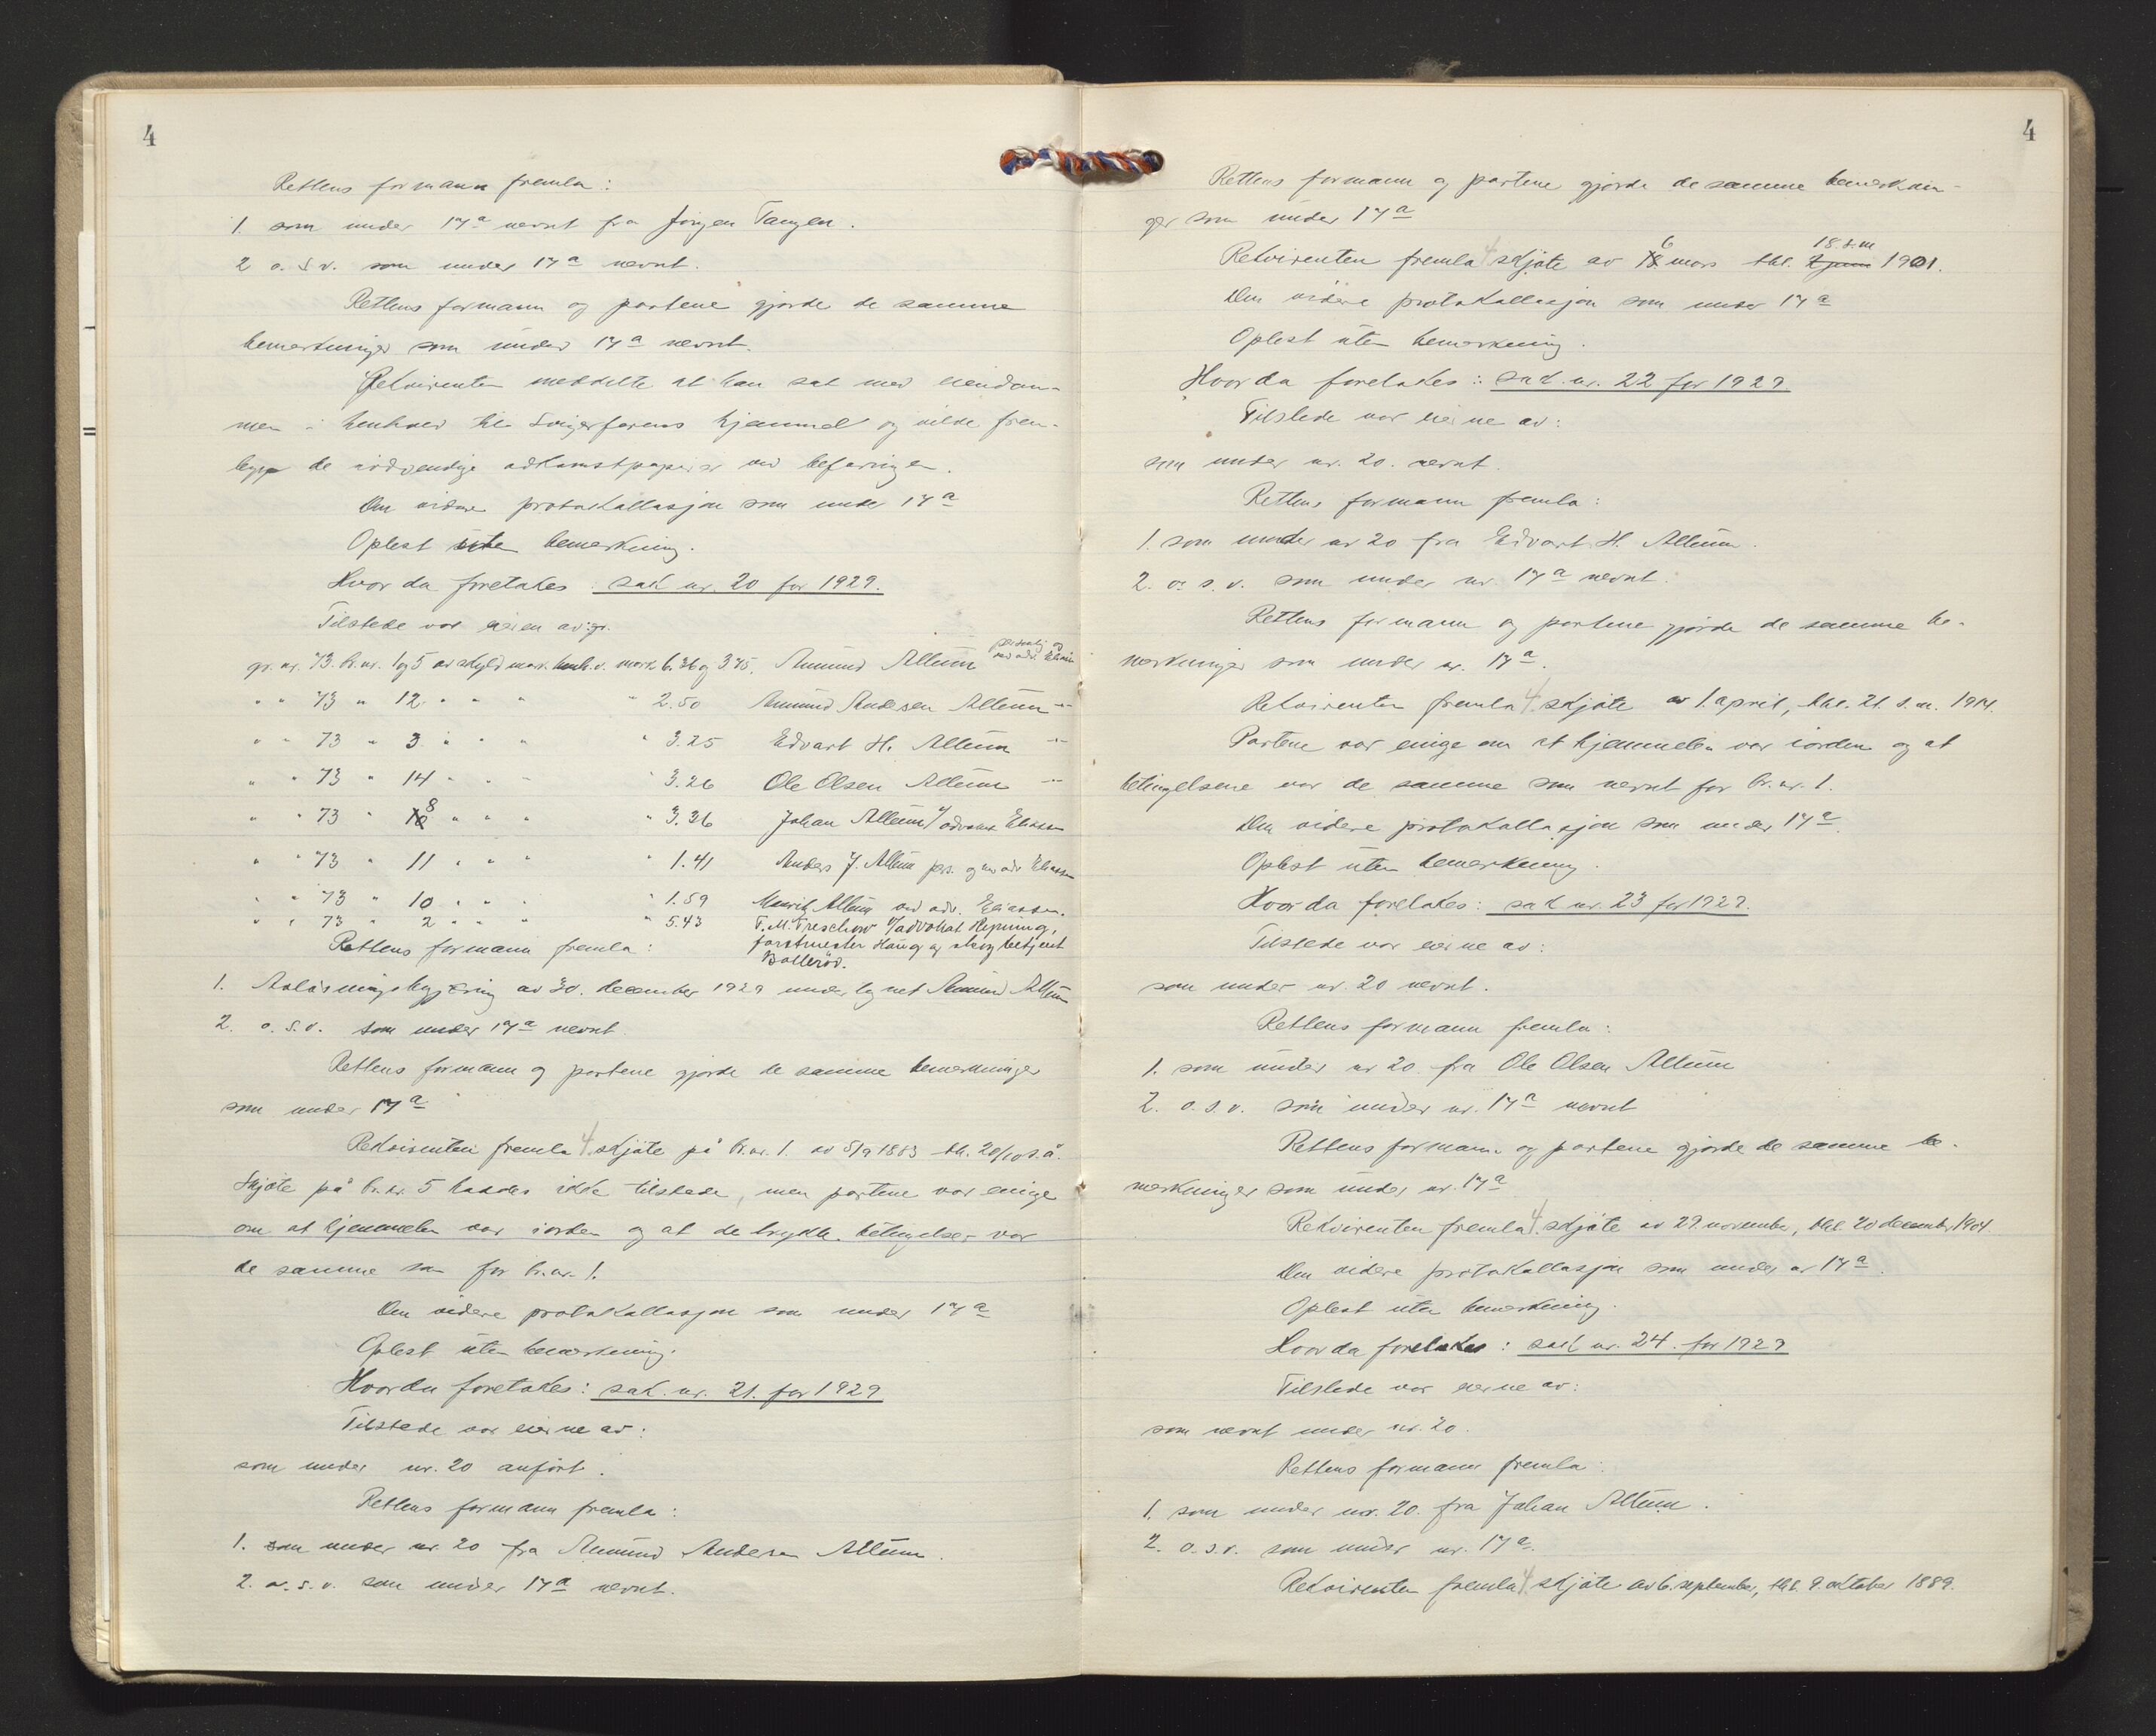 4
Rettens formann fremla:
1. som under 17a nevnt fra Jørgen Tangen.
2 o. s. v. som under 17a nevnt.
Rettens formann og partene gjorde de samme
bemerkninger som under 17a nevnt.
Rekvirenten meddelte at han sat med eiendom-
men i henhold til svigerfarens hjemmel og vilde frem-
legge de nødvendige adkomstpapirer ved befaringen.
Den videre protokollasjon som under 17a
Oplest uten bemerkning.
Hvor da foretakes: sak nr. 20 for 1929.
Tilstede var eieren av: gr.
gr. nr. 73. br. nr. 1 og 5 av skyld mark henh.v. mark 6.36 og 3.75. Amund Alleum personlig og ved adv. Eliassen
" " 73 " 12. " " " " 2.50 Amund Andersen Alleum -"-
" " 73 " 3. " " " " 3.25 Edvart H. Alleum -"-
" " 73 " 14 " " " " 3.26 Ole Olsen Alleum -"-
" " 73 " 8 " " " " 3.36 Johan Alleum v/ advokat Eliassen
" " 73 " 11 " " " " 1.41 Anders J. Alleum pers. og ved adv Eliassen
" " 73 " 10 " " " " 1.59 Mauritz Alleum ved adv. Eliassen.
" " 73 " 2 " " " " 5.43 F. M. Treschow v/advokat Hepning,
forstmester Haug og skogbetjent
Bollerød.
Rettens formann fremla:
1. Avløsningsbegjæring av 30. december 1929 undertegnet Amund Alleum
2. o. s. v. som under 17a nevnt.
Rettens formann og partene gjorde de samme bemerkninger
som under 17a
Rekvirenten fremla 4. skjøte på br. nr. 1. av 5/9 1883 tl. 20/10 s.å.
Skjøte på br. nr. 5 haddes ikke tilstede, men partene var enige
om at hjemmelen var iorden og at de trykte betingelser var
de samme som for br. nr. 1.
Den videre protokollasjon som under 17a
Oplest uten bemerkning.
Hvor da foretakes: sak. nr. 21. for 1929
Tilstede var eierne av:
som under nr. 20 anført.
Rettens formann fremla:
1. som under nr 20 fra Amund Andersen Alleum.
2. o. s. v. som under 17a nevnt.
4
Rettens formann og partene gjorde de samme bemerknin-
ger som under 17a
Rekvirenten fremla 4 skjøte av 18. 6 mars thl. 2 juni 18. s.m 1901.
Den videre protokollasjon som under 17a
Oplest uten bemerkning.
Hvor da foretakes: sak. nr. 22 for 1929
Tilstede var eierne av:
som under nr. 20. nevnt.
Rettens formann fremla:
1. som under nr 20 fra Edvart H. Alleum.
2. o. s. v. som under nr. 17a nevnt.
Rettens formann og partene gjorde de samme be-
merkninger som under nr. 17a.
Rekvirenten fremla 4. skjøte av 1. april, thl. 21. s. m. 1914.
Partene var enige om at hjemmelen var iorden og at
betingelsene var de samme som nevnt for br. nr. 1.
Den videre protokollasjon som under 17a.
Oplest uten bemerkning.
Hvor da foretakes: sak nr. 23 for 1929.
Tilstede var eierne av:
som under nr. 20 nevnt.
Rettens formann fremla:
1. som under nr 20. fra Ole Olsen Alleum
2. o. s. v. som under nr. 17a nevnt
Rettens formann og partene gjorde de samme be-
merkninger som under nr. 17a
Rekvirenten fremla 4. skjøte av 29. november, thl. 20 december 1904.
Den videre protokollasjon som under nr 17a.
Oplest uten bemerkning.
Hvor da foretakes: sak nr. 24. for 1929
Tilstede var eierne av:
som nevnt under nr. 20.
Rettens formann fremla:
1. som under nr. 20. fra Johan Alleum.
2. o. s. v. som under nr. 17a.
Rekvirenten fremla 4. skjøte av 6. september, thl. 9. oktober 1889.